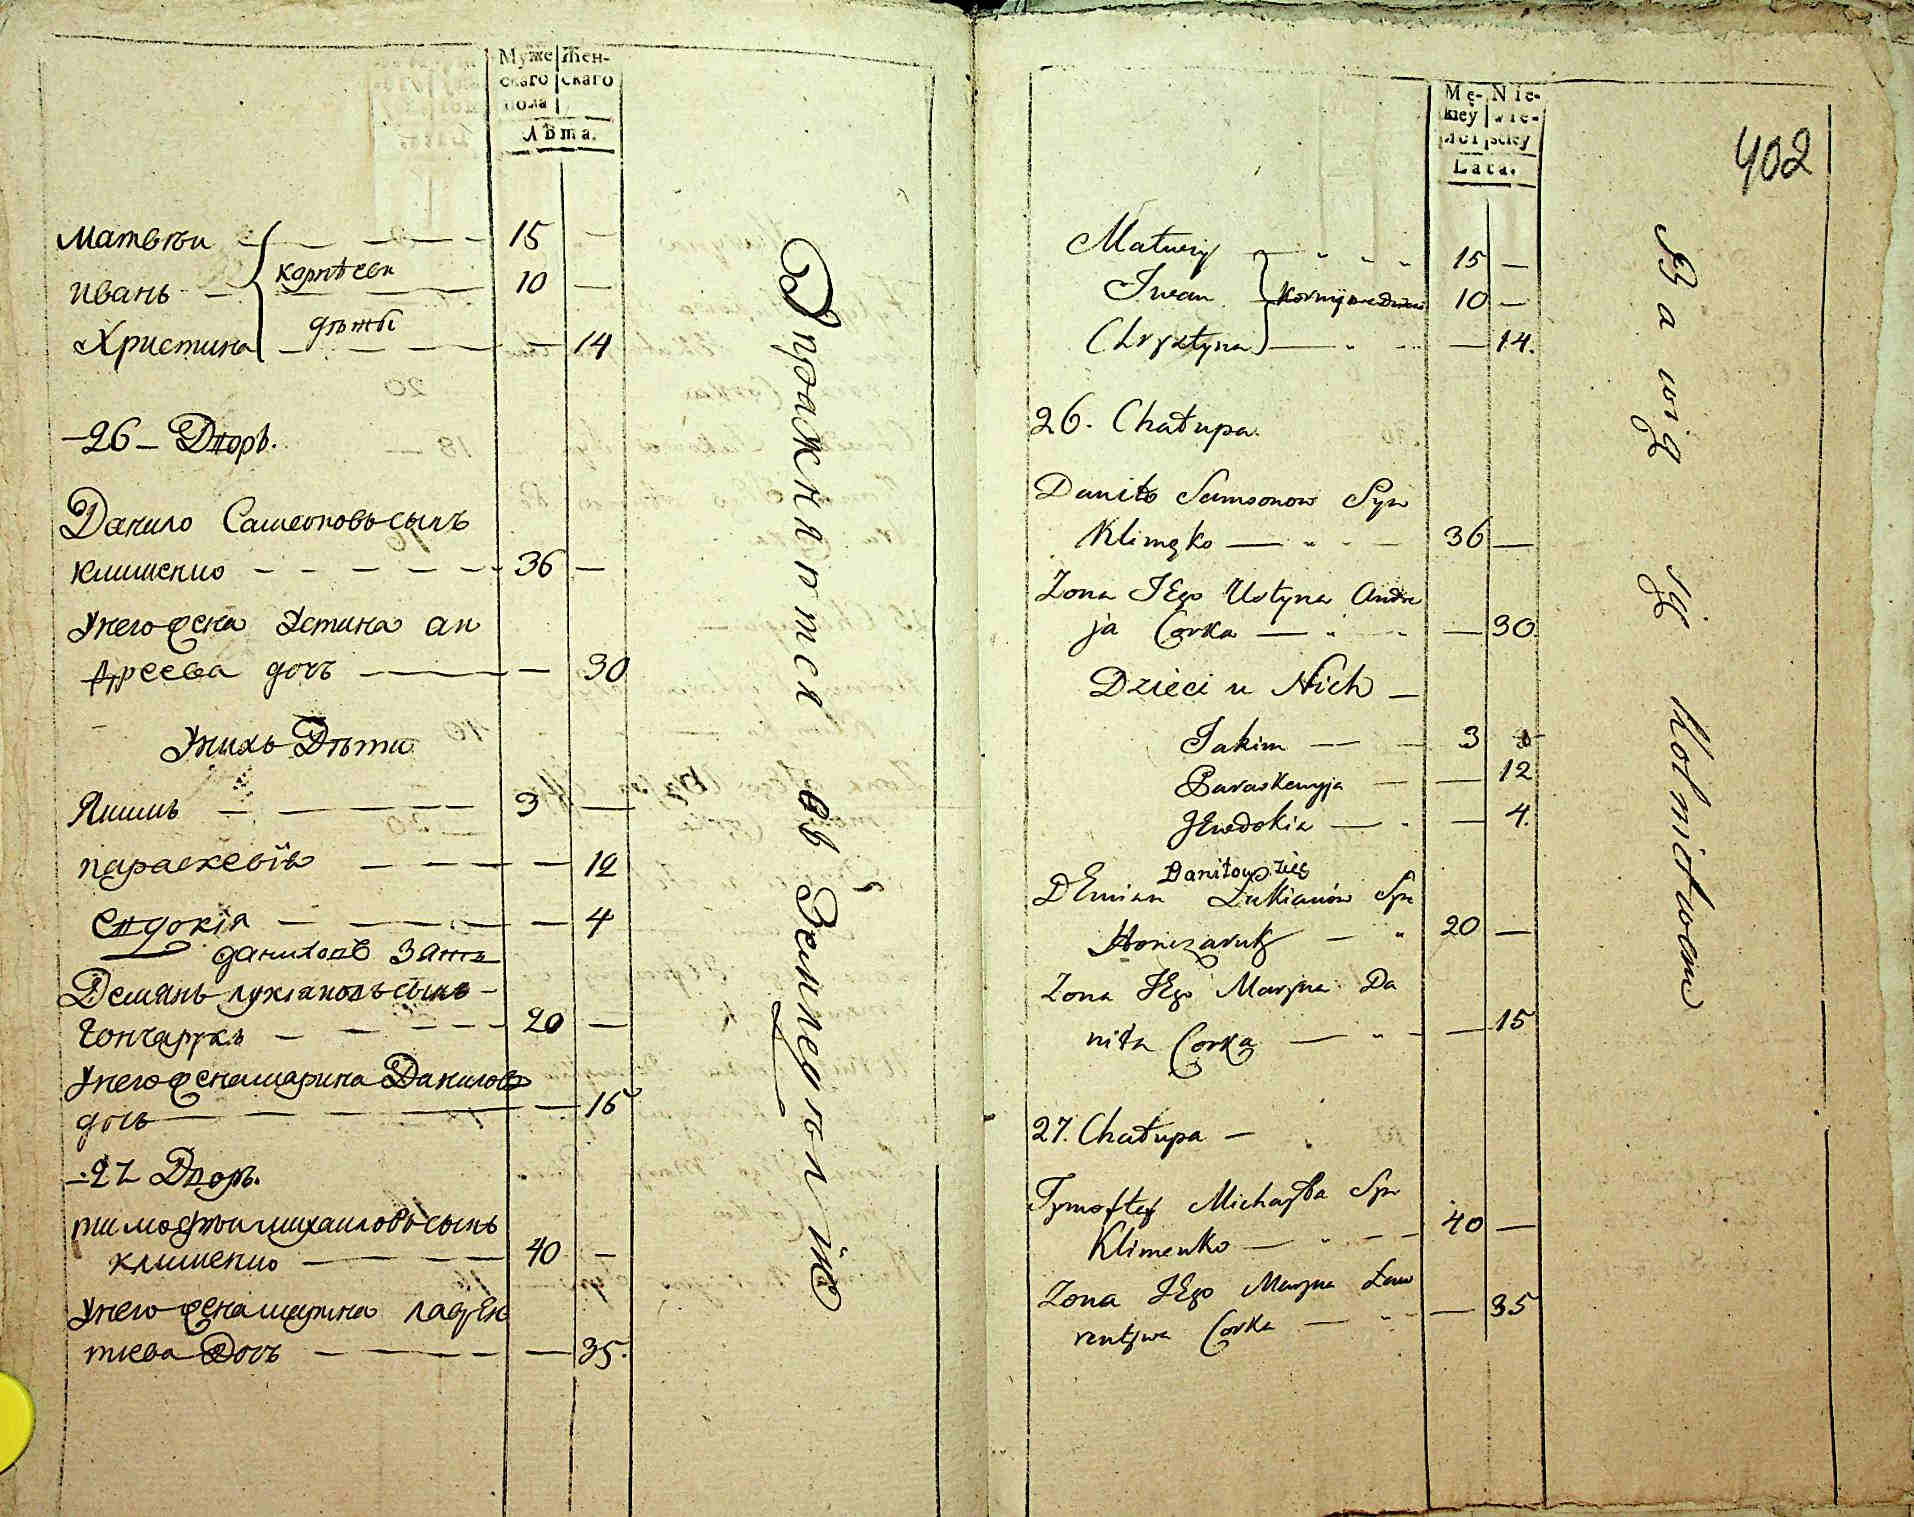 Муже Жен-
скаго скаго
пола
Лѣта.
Матвѣи — — — 15 —
Иванъ — Корнѣеви — 10 —
дѣты
Христина — — — — 14
— 26 — Дворъ.
Данило Самсоновъ сынъ
Клименко — — — — 36 —
У него жена Устина Ан
дреева дочъ — — — 30
У нихъ Дѣти
Якимъ — — — 3 —
Параскевія — — — — 12
Евдокія — — — — 4
Даниловъ Зять
Демянъ Лукіановъ сынъ —
Гончарукъ — — — — 20 —
У него жена Марина Данилов
дочь — — — — 15
— 27 Дворъ.
Тимофѣи Михаиловъ сынъ
Клименко — — — 40 —
У него жена Марина Лаврен
тиева Дочъ — — — — 35.
Упражняются въ Земледѣліи
402
Mę- Nie-
kiey wie-
płci sciey
Lata.
Matwiy — 15 —
Iwan Kornijowe Dzieci 10 —
Chrystyna — — — 14.
26. Chałupa.
Daniło Samsonow Syn
Klimęko — — 36 —
Zona JEgo Ustyna Andre
ja Corka — — — 30
Dzieci u Nich —
Jakim — — 3
Paraskewyja — — 12
JEwdokia — — — 4.
Daniłow Zięć
DEmian Łukianów Syn
Honczaruk — 20 —
Zona JEgo Maryna Da
niła Corka — — — 15
27. Chałupa —
Tymoftey Michayła Syn
Klimenko — — 40 —
Zona JEgo Maryna Law
rentywa Corka — — — 35
Bawią Się Rolnictwem